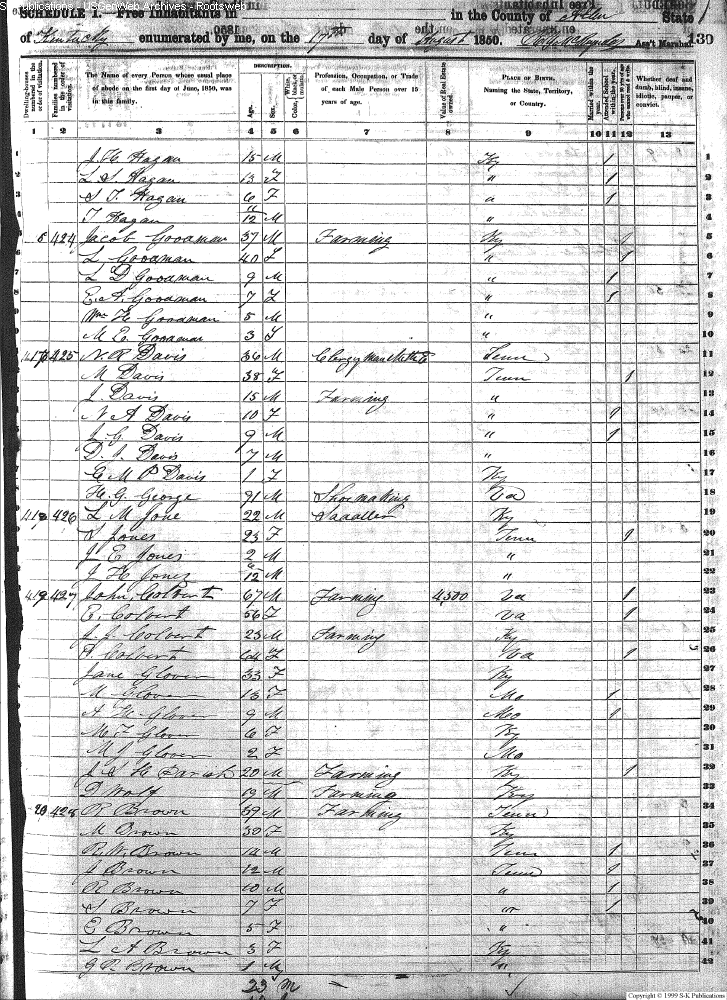 Publications - USGenWeb Archives - Rootsweb
SCHEDULE I.—Free Inhabitants in in the County of Allen State
of Kentucky enumerated by me, on the 17th day of August 1850. Ass't Marshal. 130
Dwelling-houses numbered in the order of visitation. Families numbered in the order of visitation. The Name of every Person whose usual place of abode on the first day of June, 1850, was in this family. DESCRIPTION. Age. Sex. White, black, or mulatto. Profession, Occupation, or Trade of each Male Person over 15 years of age. Value of Real Estate owned. PLACE OF BIRTH. Naming the State, Territory, or Country. Married within the year. Attended School within the year. Persons over 20 y'rs of age who cannot read & write. Whether deaf and dumb, blind, insane, idiotic, pauper, or convict.
1 2 3 4 5 6 7 8 9 10 11 12 13
1 J. H. Hagan 15 M Ky 1 1
2 L S Hagan 13 F " 1 2
3 S T. Hagan 6 F " 1 3
4 T Hagan 12 M " 4
5 424 Jacob Goodman 37 M Farming Ky 1 5
6 L. Goodman 40 F " 1 6
7 L D Goodman 9 M " 1 7
8 E. A. Goodman 7 F " 1 8
9 Wm H Goodman 5 M " 9
10 M E. Goodman 3 F " 10
425 N. R Davis 36 M Clergyman Tenn 11
M Davis 38 F Tenn 1 12
J. Davis 15 M Farming " 13
N A Davis 10 F " 1 14
J. G. Davis 9 M " 1 15
D. J. Davis 7 M " 16
E M P Davis 1 F Ky 17
H. G. George 91 M Shoemaking Va 18
418 426 L M Jone 22 M Saddler Ky 19
S Jones 23 F Tenn 1 20
J E Jones 2 M " 21
J H Jones 12 M " 22
419 427 John Colvert 67 M Farming 4,500 Va 1 23
E. Colvert 56 F Va 1
J. J. Colvert 23 M Farming Ky 25
Colvert 64 F Va 1 26
Jane Glover 33 F Ky
M Glover 13 F Mo 1 28
A M Glover 9 M Mo 1 29
M. F Glover 6 F Ky 30
M J Glover 2 F Mo 31
Parish 20 M Farming Ky 1 32
D Wolf 19 M Farming Ky 33
20 428 R Brown 39 M Farming Tenn 34
M Brown 30 F Ky 35
R. W. Brown 14 M Tenn 1 36
J Brown 12 M Tenn 1 37
R Brown 10 M " 1 38
S Brown 7 F " 1 39
E Brown 5 F "
L A Brown 3 F Ky 41
G R Brown 1 M " 42
23 M
Copyright © 1999 S-K Publications